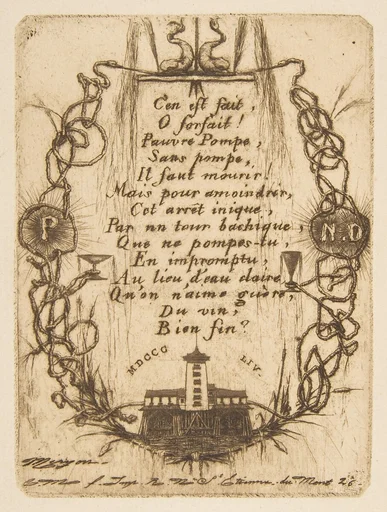 C'en est fait,
O forfait!
Pauvre Pompe,
Sans pompe,
Il faut mourir!
Mais pour amoindrir,
Cet arrêt inique,
Par un tour bachique,
Que ne pompes-tu,
En impromptu,
Au lieu d'eau claire
Qu'on n'aime guère,
Du vin,
Bien fin?
P.
N.D
MDCCC LIV.
Meryon
f. Imp. R. Nve St Etienne-du-Mont 26